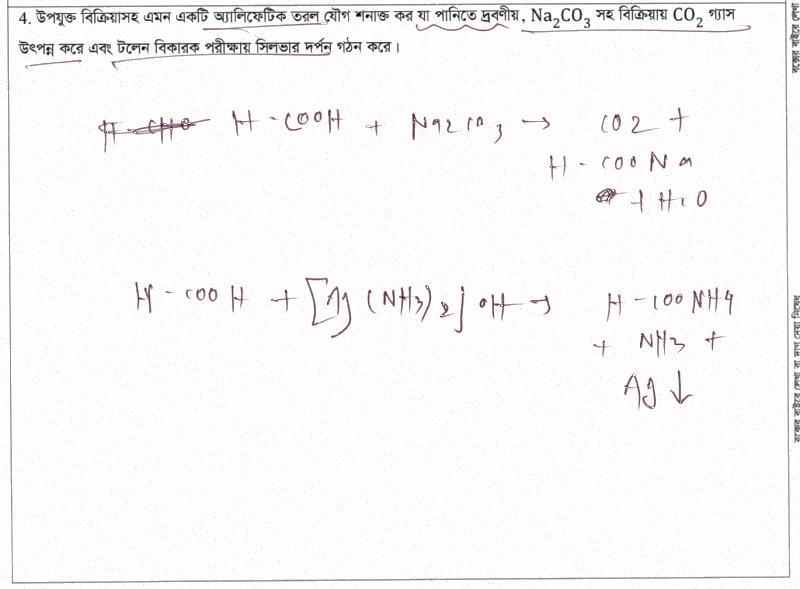 4. উপযুক্ত বিক্রিয়াসহ এমন একটি অ্যালিফেটিক তরল যৌগ শনাক্ত কর যা পানিতে দ্রবণীয়, Na₂CO₃ সহ বিক্রিয়ায় CO₂ গ্যাস
উৎপন্ন করে এবং টলেন বিকারক পরীক্ষায় সিলভার দর্পন গঠন করে।
H-CHO H-COOH + Na2CO3 → CO2 +
H-COONa
+ H2O
H-COOH + [Ag(NH3)2]OH → H-COONH4
+ NH3 +
Ag ↓